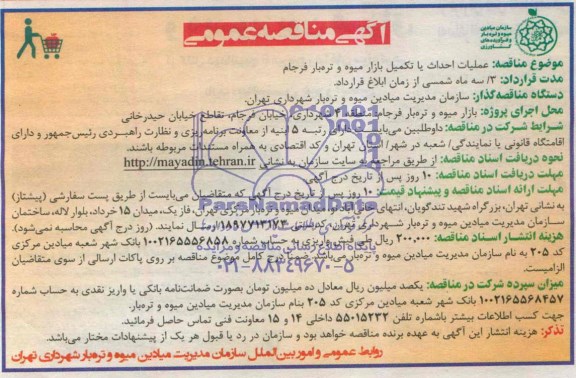 آگهی مناقصه عمومی
سازمان میادین
میوه و تره‌بار
موضوع مناقصه: عملیات احداث یا تکمیل بازار میوه و تره‌بار فرجام
مدت قرارداد: ۳/ سه ماه شمسی از زمان ابلاغ قرارداد.
دستگاه مناقصه‌گذار: سازمان مدیریت میادین میوه و تره‌بار شهرداری تهران.
محل اجرای پروژه: بازار میوه و تره‌بار فرجام: منطقه شهرداری، خیابان فرجام، تقاطع خیابان حیدرخانی
شرایط شرکت در مناقصه: داوطلبین می‌بایست دارای رتبه ۵ ابنیه از معاونت برنامه‌ریزی و نظارت راهبردی رئیس‌جمهور و دارای
اقامتگاه قانونی یا نمایندگی/ شعبه در شهر/ استان تهران و کد اقتصادی به همراه مستندات مربوطه باشند.
نحوه دریافت اسناد مناقصه: از طریق مراجعه به سایت سازمان به نشانی http://mayadin.tehran.ir
مهلت دریافت اسناد مناقصه: ۱۰ روز پس از تاریخ درج آگهی
مهلت ارائه اسناد مناقصه و پیشنهاد قیمت: ۱۰ روز پس از تاریخ درج آگهی که متقاضیان می‌بایست از طریق پست سفارشی (پیشتاز)
به نشانی تهران، بزرگراه شهید تندگویان، انتهای میوه و تره‌بار مرکزی تهران، فاز یک، میدان ۱۵ خرداد، بلوار لاله، ساختمان
سازمان مدیریت میادین میوه و تره‌بار شهرداری تهران کدپستی ۱۸۹۷۷۱۳۱۷۳ ارسال نمایند. (روز درج آگهی محاسبه نمی‌شود)
هزینه انتشار اسناد مناقصه: ۲۰۰,۰۰۰ ریال شماره ۱۰۰۲۱۶۵۵۵۶۸۵۸ بانک شهر شعبه میادین مرکزی
کد ۲۰۵ به نام سازمان مدیریت میادین میوه و تره‌بار می‌باشد. ضمناً درج کامل موضوع مناقصه بر روی پاکات ارسالی از سوی متقاضیان
الزامیست.
میزان سپرده شرکت در مناقصه: یکصد میلیون ریال معادل ده میلیون تومان بصورت ضمانت‌نامه بانکی یا واریز نقدی به حساب شماره
۱۰۰۲۱۶۵۵۶۸۴۵۷ بانک شهر شعبه میادین مرکزی کد ۲۰۵ بنام سازمان مدیریت میادین میوه و تره‌بار.
جهت کسب اطلاعات بیشتر باشماره تلفن ۵۵۰۱۵۲۳۲ داخلی ۱۴ و ۱۵ معاونت فنی تماس حاصل فرمائید.
تذکر: هزینه انتشار این آگهی به عهده برنده مناقصه خواهد بود و سازمان در رد یا قبول هر یک از پیشنهادات مختار می‌باشد.
روابط عمومی و امور بین‌الملل سازمان مدیریت میادین میوه و تره‌بار شهرداری تهران
ParsNamadData
۰۲۱-۸۸۳۴۹۶۷۰-۵